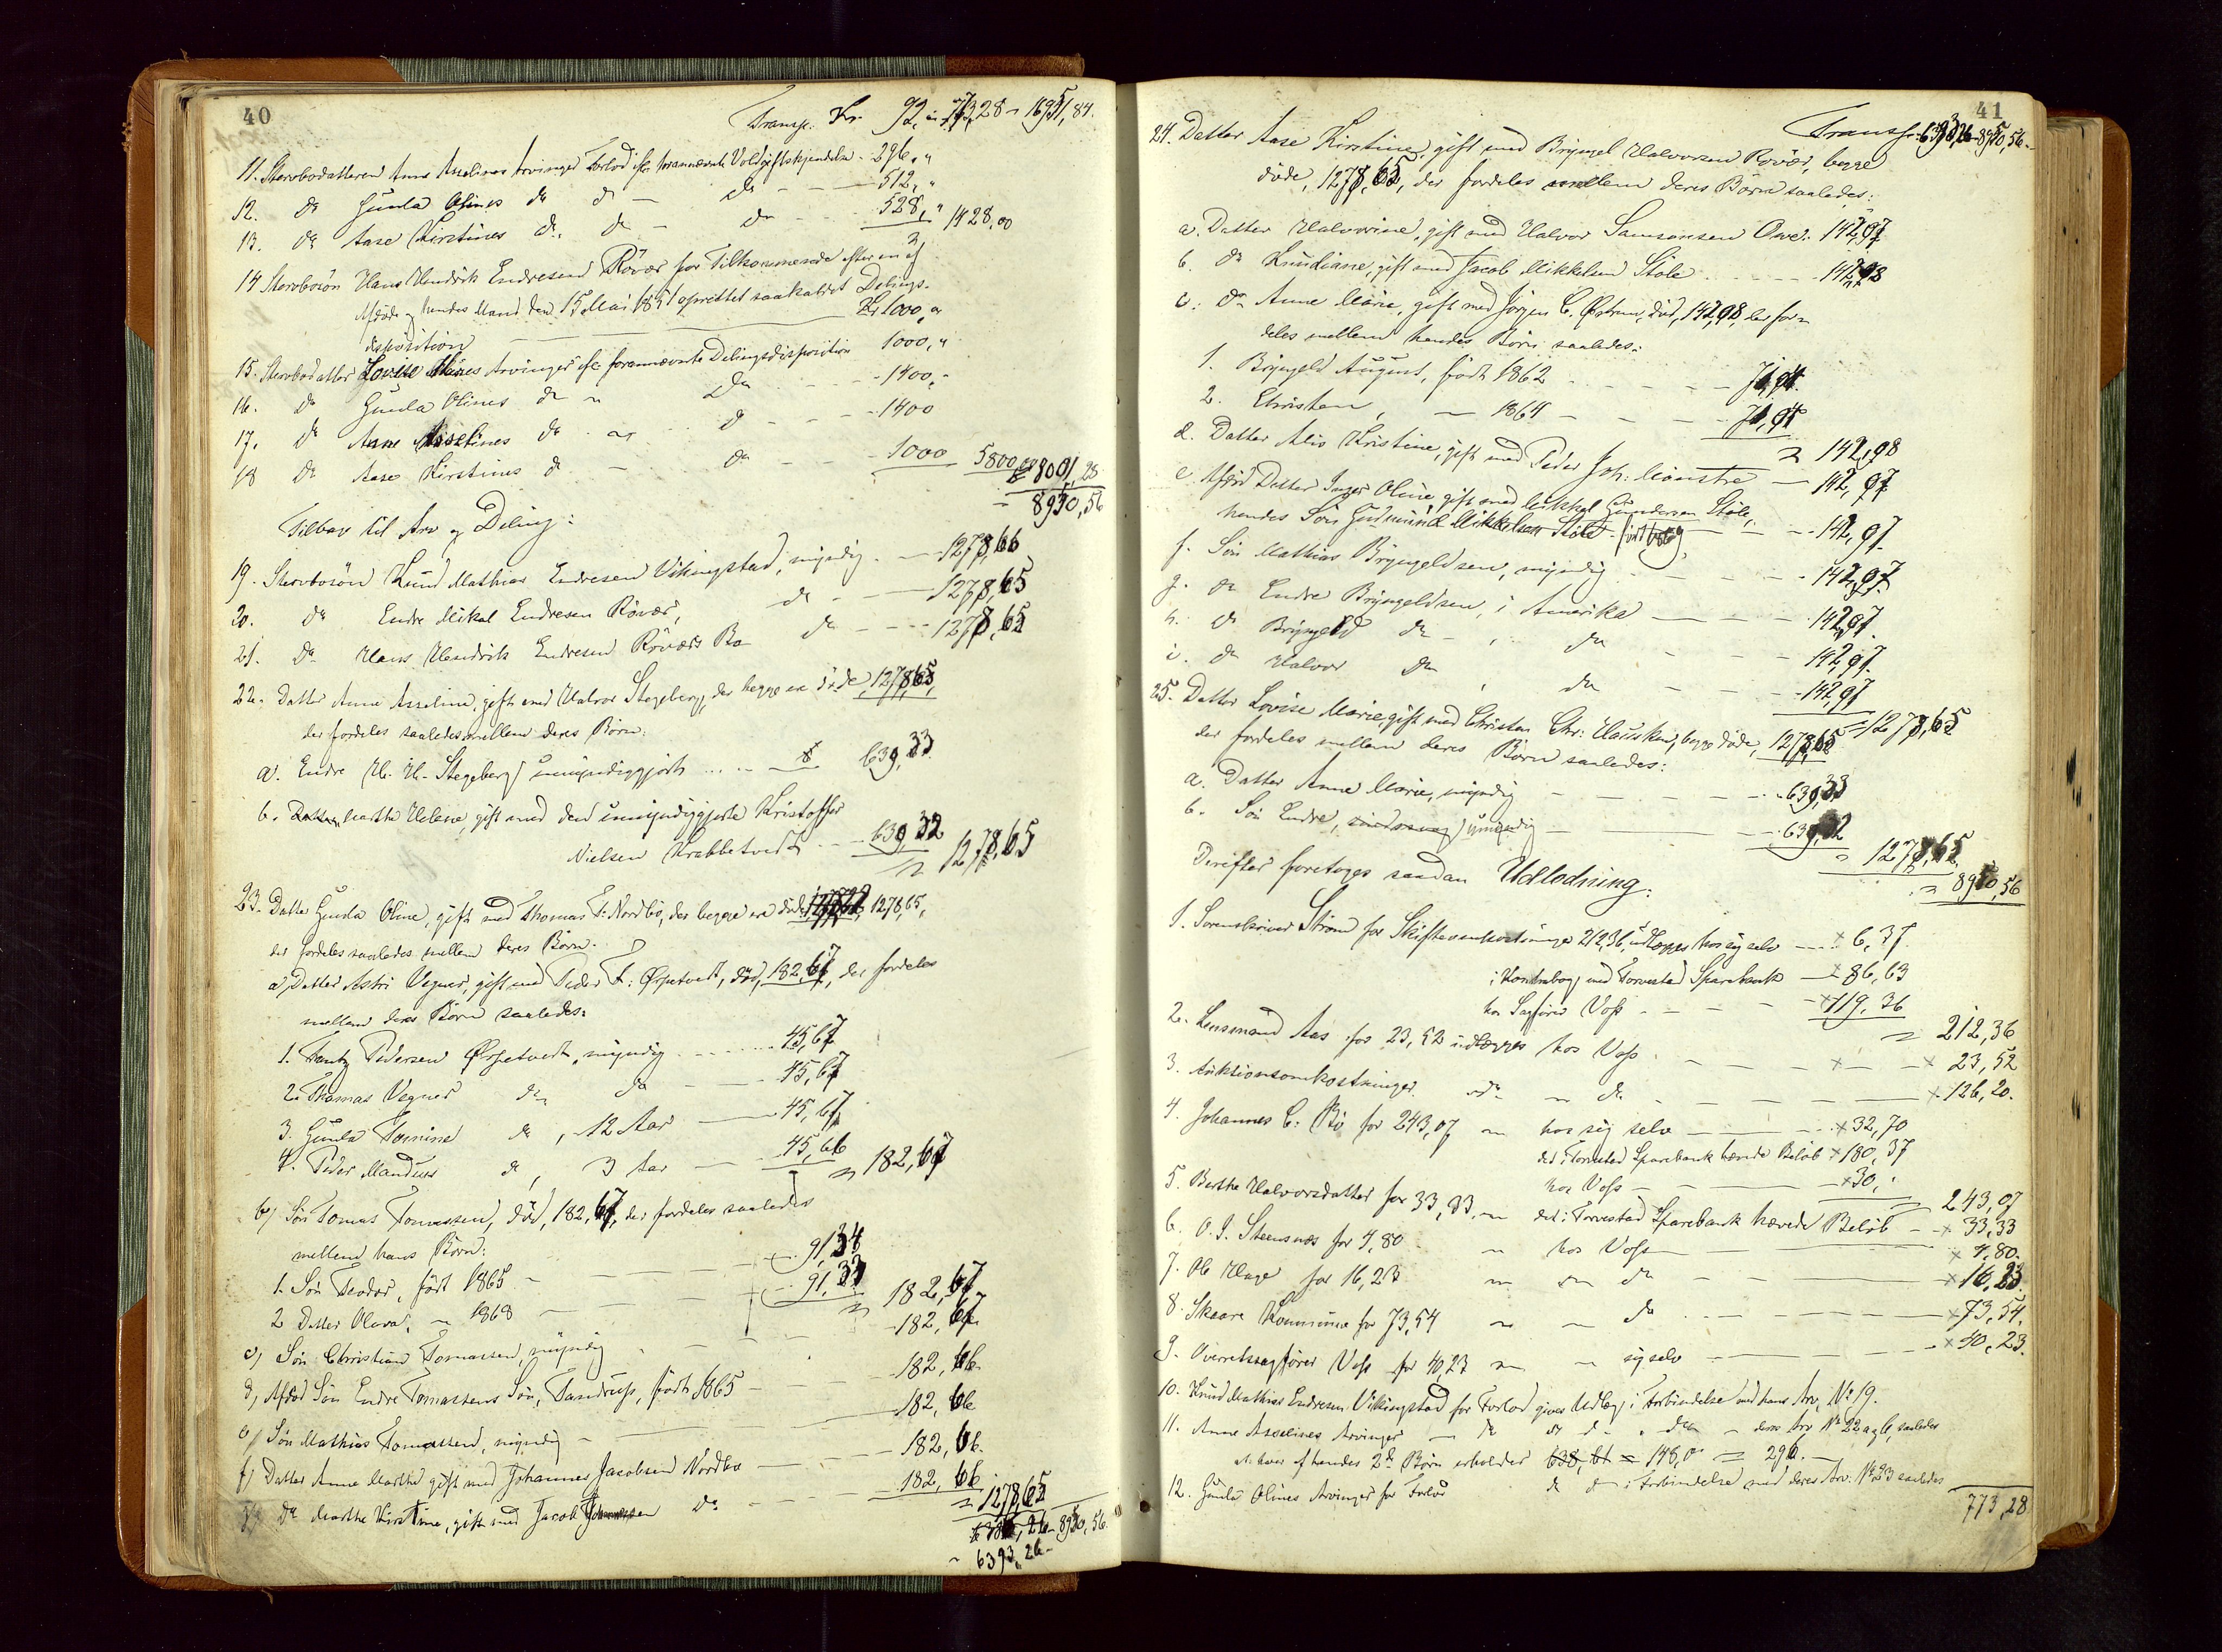 40
Transp. Kr. 92, " 773,28 - 16951,84.
11. Sterbodatteren Anne Asselines Arvinger Forlod ifr. forannævnte Voldgiftskjendelse - 296, "
12. do Gunla Olines do do - do - - - 512, "
13. do Aase Kirstines do do - do - - - 528, " 1428,00
14 Sterbosön Hans Hendrik Endresen Rövær for Tilkommende efter en af
Afdöde og hendes Mand den 15 Mai 1851 oprettet saakaldet Delings-
disposition Kr 1000, "
15. Sterbodatter Lovise Maries Arvinger ifr. forannævnte Delingsdisposition 1000, "
16. do Gunla Olines do " do - 1400, -
17. do Anne Asselines do - do - - 1400
18 do Aase Kirstines do - do - - 1000 5800,00 8001,28
= 8950,56
Tilbage til Arv og Deling:
19. Sterbosön Knud Mathias Endresen Vikingstad, myndig - 1278,66
20. do Endre Mikal Endresen Rövær, do - - 1278,65
21. do Hans Hendrik Endresen Röværs Bo do - - 1278,65
22. Datter Anne Asseline, gift med Halvor Stegeberg, der begge er döde, 1278,65,
der fordeles saaledes mellem deres Börn:
a. Endre H. H. Stegeberg, umyndiggjort ... 639,33.
b. Datter Marthe Helene, gift med den umyndiggjorte Kristoffer
Nielsen Krabbetvedt - - 639,32
= 1278,65
23. Datter Gunla Oline, gift med Thomas T. Nordbö, der begge ere döde, 1278,65,
der fordeles saaledes mellem deres Börn.
a) Datter Astri Vegner, gift med Peder T. Ørpetvedt, död, 182,67, der fordeles
mellem deres Börn saaledes:
1. Pedersen Ørpetvedt, myndig - 45,67
2. Thomas Vegner do do - 45,67
3. Gunla Tomine do, 12 Aar - 45,67
4. Peder Mandius do, 3 Aar - 45,66
= 182,67
b) Sön Tomas Tomassen, död, 182,67, der fordeles saaledes
mellem hans Börn:
1. Sön Teodor, födt 1865 - 91,34
2 Datter Olava, - 1868 - 91,33
= 182,67
c) Sön Christian Tomassen, myndig - 182,67
d) Afdöd Sön Endre Tomassens Sön, födt 1865 - 182,66
e) Sön Mathias Tomassen, myndig - 182,66
f) Datter Anne Marthe gift med Johannes Jacobsen Nordbö - 182,66.
g) do Marthe Kirstine, gift med Jacob Johannessen do - 182,66
= 1278,65
- 8950,56.
- 6393,26 -
41
Transp. 6393,26 - 8950,56 -
24. Datter Aase Kirstine, gift med Bryngel Halvorsen Rövær, begge
döde, 1278,65, der fordeles mellem deres Börn saaledes:
a. Datter Halvorine, gift med Halvor Samsonsen Owe. 142,97
b. do Knudiane, gift med Jacob Mikkelsen Stöle - - 142,98
c. do Anne Marie, gift med Jörgen C. Østrem, död, 142,98, der for=
deles mellem hendes Börn saaledes:
1. Bryngeld August, födt 1862 - - 71,94
2. Christen, - 1864 - - 71,94
= 142,98
d. Datter Alis Kristine, gift med Peder Joh. Mönstre - 142,97
e. Afdöd Datter Inger Oline, gift med Mikkel Gundersen Stöle,
hendes Sön Gudmund Mikkelsen Stöle - - - 142,97
f. Sön Mathias Bryngeldsen, myndig - - - 142,97
g. do Endre Bryngeldsen, i Amerika - - 142,97
h. do Bryngeld do , do - - 142,97
i. do Halvor do , do - - 142,97
= 1278,65
25. Datter Lovise Marie, gift med Christen Chr. Hausken, begge döde, 1278,65
der fordeles mellem deres Börn saaledes:
a. Datter Anne Marie, myndig - - - 639,33
b. Sön Endre, umyndig - - 639,32
= 1278,65
= 8950,56
Derefter foretoges saadan Udlodning:
1. Sorenskriver Ström for Skifteomkostninger 212,36, udlægges hos sig selv - × 6,37
i Kontrabog med Torvestad Sparebank - × 86,63
hos Sagförer Voss - - × 119,36
= 212,36
2. Lensmand Aas for 23,52 udlægges hos Voss - - × 23,52
3. Auktionsomkostninger do - do - - × 126,20.
4. Johannes C. Bö for 243,07 - hos sig selv - × 32,70
det i Torvestad Sparebank hævede Belöb × 180,37
hos Voss - × 30, "
= 243,07
5. Berthe Halvorsdatter for 33,33, - det i Torvestad Sparebank hævede Belöb - × 33,33
6. O. J. Steensnæs for 4,80 - hos Voss - × 4,80.
7. Ole Hage for 16,23 - do - × 16,23.
8. Skaare Kommune for 73,54 - - do - × 73,54.
9. Overretssagförer Voss for 40,23 - - sig selv - × 40,23.
10. Knud Mathias Endresen Vikingstad for Forlod gives Udlæg i Forbindelse med hans Arv, No 19.
11. Anne Asselines Arvinger - do do - do - deres Arv No 22 a og b, saaledes
at hver af hendes 2de Börn erholder 148,00 = 296. -
12. Gunla Olines Arvinger for Forlod do do i Forbindelse med deres Arv No 23 saaledes
773,28